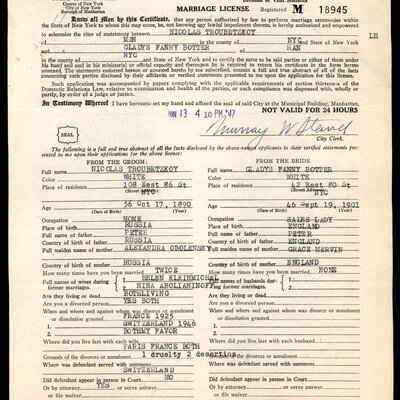 County of New York
City of New York
Borough of Manhattan
MARRIAGE LICENSE
Division of Vital Statistics
M 18945
Know all Men by this Certificate, that any person authorized by law to perform marriage ceremonies within
the State of New York to whom this may come, he, not knowing any lawful impediment thereto, is hereby authorized and empowered
to solemnize the rites of matrimony between NICOLAS TROUBETZKOY
LH
of MAN in the county of NYC and State of New York and
GLADYS FANNY BOTTER of MAN
in the county of NYC and State of New York and to certify the same to be said parties or either of them under
his hand and seal in his ministerial or official capacity and thereupon he is required to return his certificate in the form hereto
annexed. The statements endorsed hereon or annexed hereto by me subscribed, contain a full and true abstract of all of the facts
concerning such parties disclosed by their affidavits or verified statements presented to me upon the application for this license.
Such application was accompanied by papers complying with the applicable requirements of section thirteen-a of the
Domestic Relations Law, relative to examination and health of the applicants, or such compliance was dispensed with, wholly or
partly, by order of a judge or justice.
In Testimony Whereof I have hereunto set my hand and affixed the seal of said City at the Municipal Building, Manhattan,
NOT VALID FOR 24 HOURS
JUN 13 4 10 PM '47
City Clerk.
SEAL
The following is a full and true abstract of all the facts disclosed by the above-named applicants in their verified statements presented to me upon their applications for the above license:
FROM THE GROOM:
FROM THE BRIDE
Full name NICOLAS TROUBETZKOY
Full name GLADYS FANNY BOTTER
Color WHITE
Color WHITE
Place of residence 108 East 86 St
Place of residence 42 East 80 St
(Street Address)
NYC
Age 56 Oct 17, 1890
Age 46 Sept 19, 1901
(Date of Birth) (Year)
(Date of Birth) (Year)
Occupation NONE
Occupation SALES LADY
Place of birth RUSSIA
Place of birth ENGLAND
Full name of father PETER
Full name of father PETER
Country of birth of father RUSSIA
Country of birth of father ENGLAND
Full maiden name of mother ALEXANDRA OBOLENSKY
Full maiden name of mother GRACE MERVIN
Country of birth of mother RUSSIA
Country of birth of mother ENGLAND
How many times have you been married TWICE
How many times have you been married NONE
Full names of wives during former marriages. 1 HELEN KLEINMICHEL
2 NINA ABOLIANINOFF
Full names of husbands during former marriages. 1
2
Are they living or dead BOTH LIVING
Are they living or dead
Are you a divorced person YES BOTH
Are you a divorced person
When and where and against whom was divorce or annulment or dissolution granted FRANCE 1925
SWITZERLAND 1946
BOTH MY FAVOR
When and where and against whom was divorce or annulment or dissolution granted
Where was last living with same PARIS FRANCE BOTH
Where was last living with same
Grounds of the divorce or annulment 1 cruelty 2 desertion
Grounds of the divorce or annulment
Where was defendant served with summons SWITZERLAND
Where was defendant served with summons
Did defendant appear in person in Court NO
Did defendant appear in person in Court
Or by attorney YES or answer serve
or file waiver
Or by attorney or answer serve
or file waiver